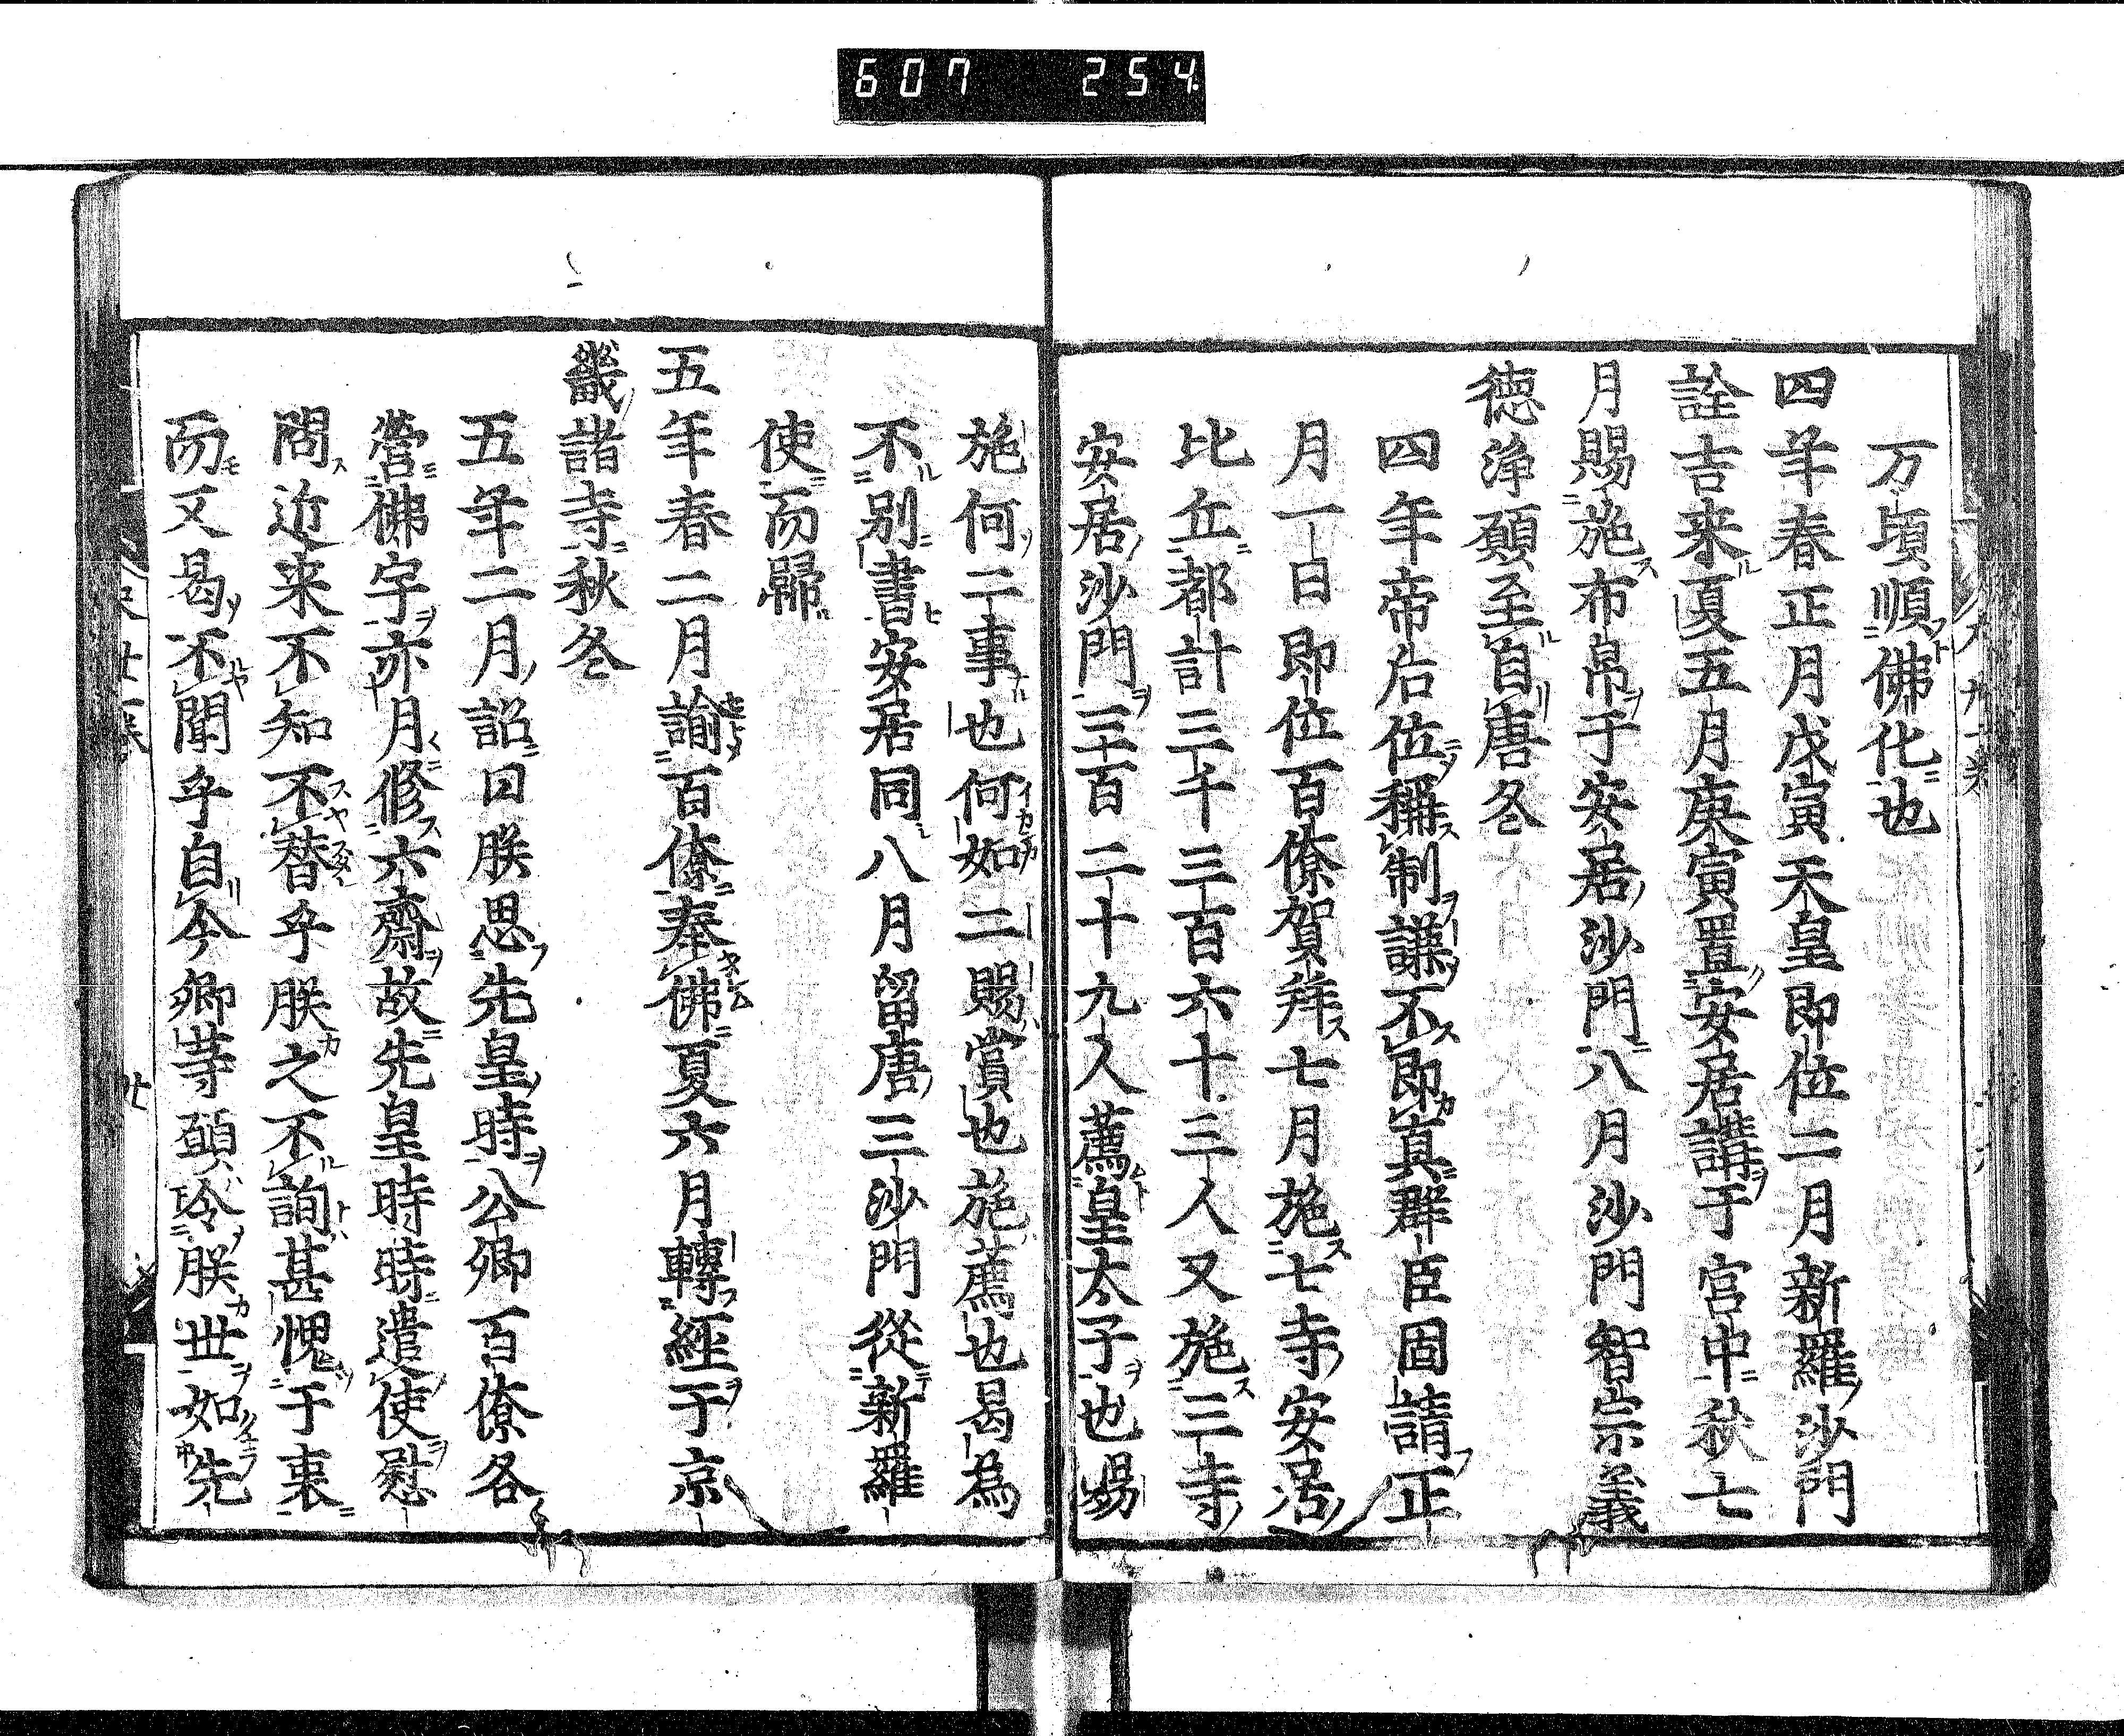 607 254
万頃順佛化也
四年春正月戊寅天皇即位二月新羅沙門
詮吉来夏五月庚寅置安居講于宮中秋七
月賜施布帛于安居沙門八月沙門智宗義
徳浄願至自唐冬
四年帝后位稱制謙不即真群臣固請正
月一日即位百僚賀拜七月施七寺安居
比丘都計三千三百六十三人又施三寺
安居沙門三百二十九人薦皇太子也賜
施何二事也何如二賜賞也施薦也曷為
不別書安居同八月留唐三沙門從新羅
使而歸
五年春二月諭百僚奉佛夏六月轉經于京
畿諸寺秋冬
五年二月詔曰朕思先皇時公卿百僚各
營佛宇亦月修六齋故先皇時時遣使慰
問近来不知不替乎朕之不詢甚愧于衷
而又曷不聞乎自今卿等願令朕世如先